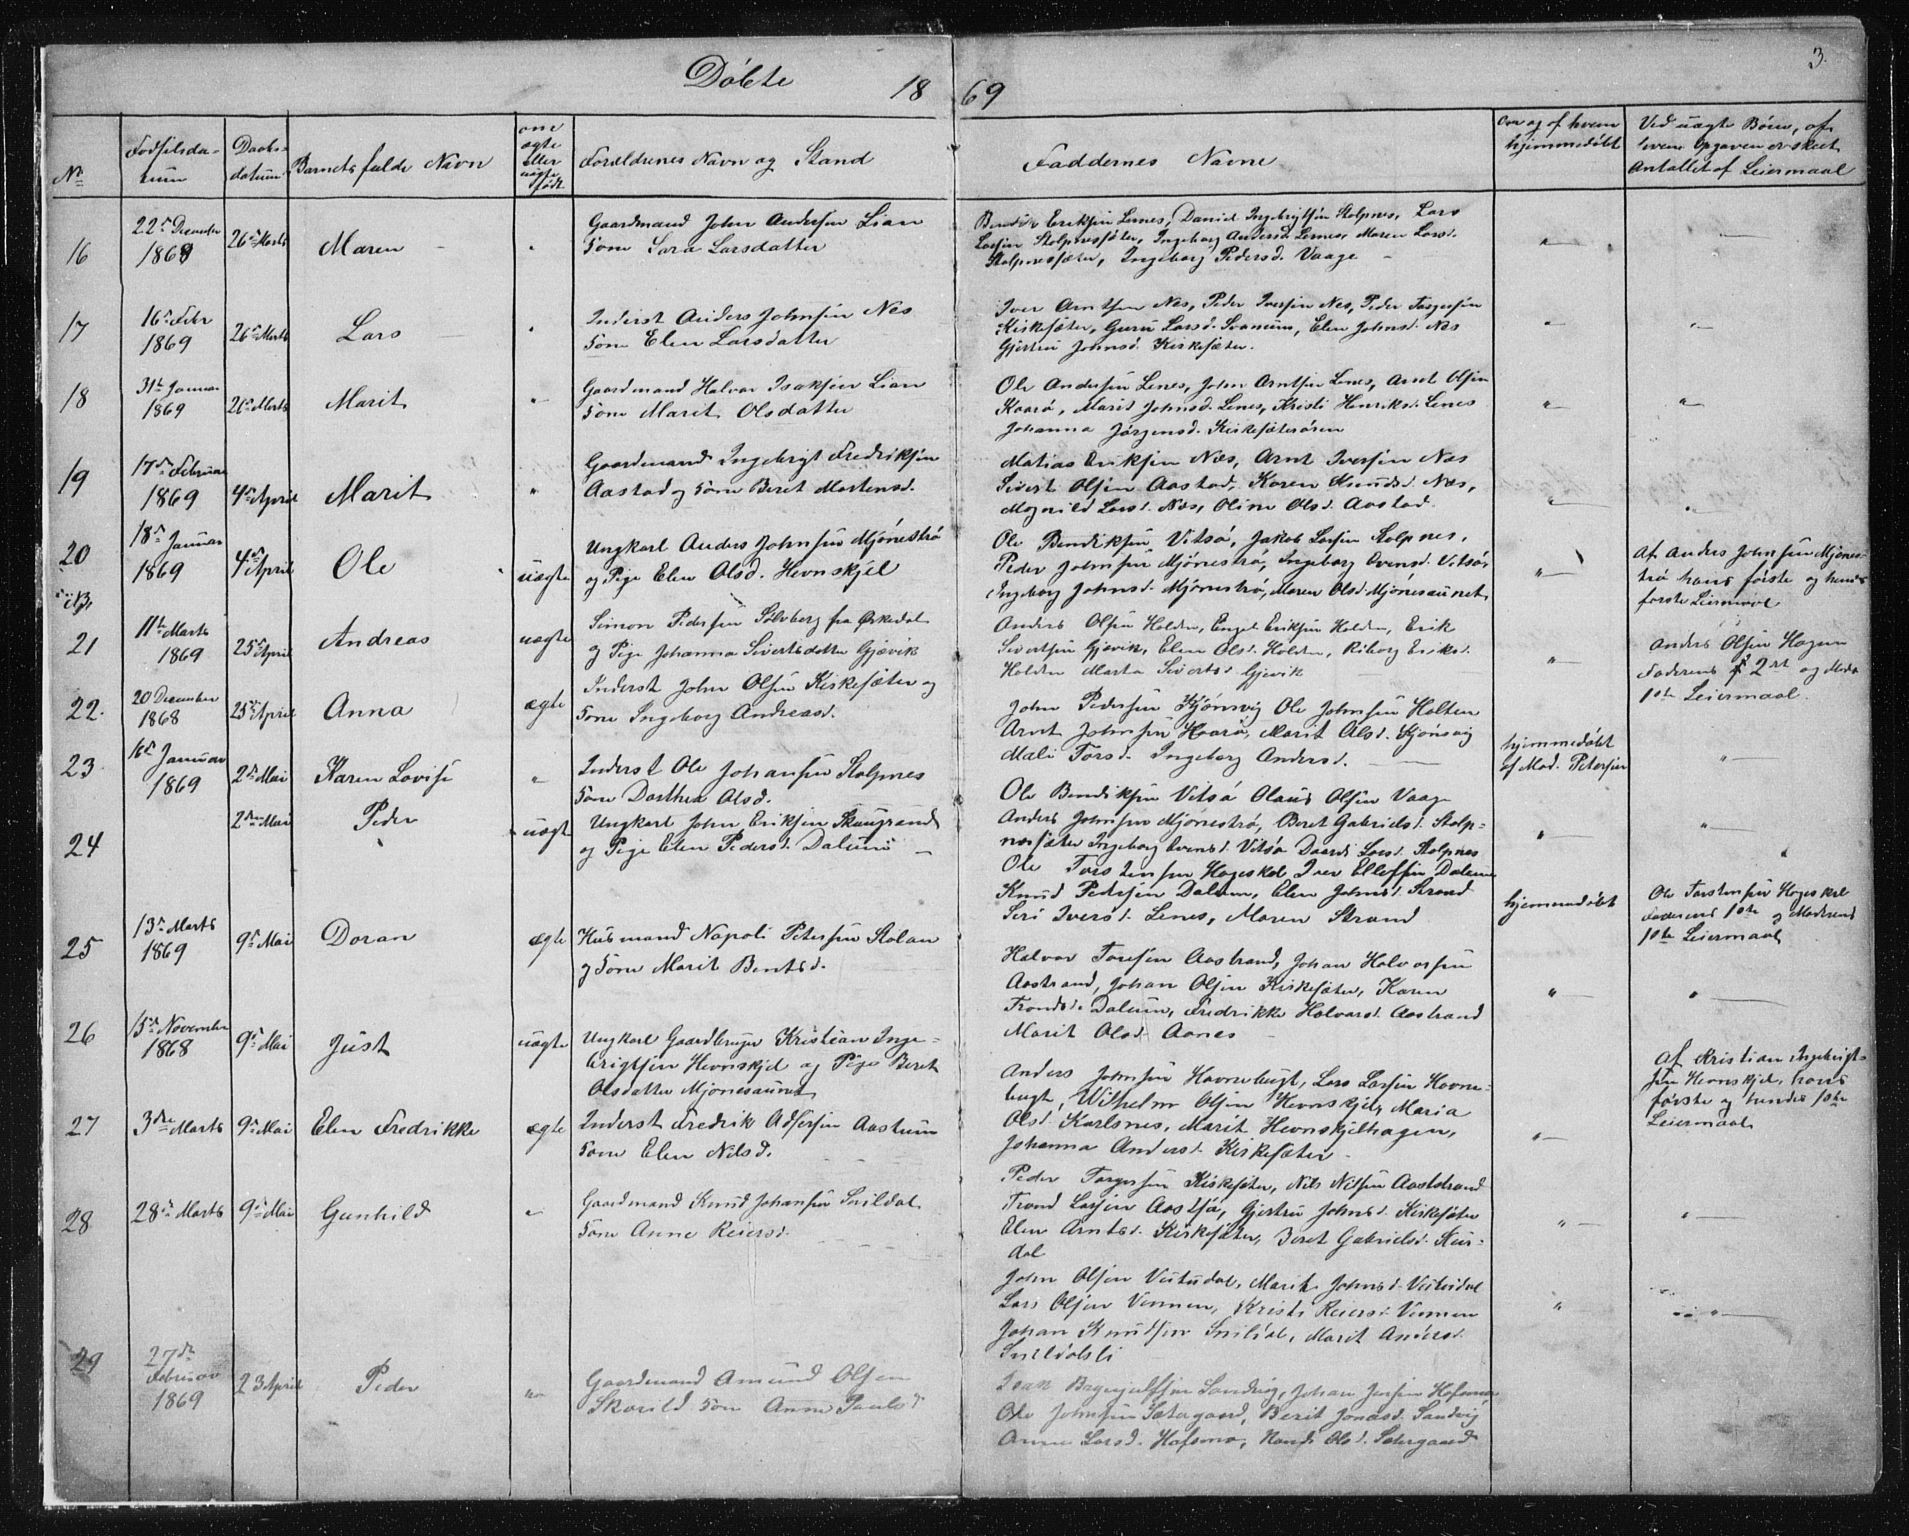 3.
Døbte 18 69
No
Fødselsda-
tum
Daabs-
datum
Barnets fulde Navn
om
ægte
eller
uægte
født
Forældrenes Navn og Stand
Faddernes Navne
Om og af hvem
hjemmedøbt
Ved uægte Børn, af
hvem Opgaven er skeet
Antallet af Leiermaal
16
22de December
1868
26de Marts
Maren
"
Gaardmand John Andersen Lian
Kone Sara Larsdatter
Eriksen Lenes, Daniel Ingebrigtsen Stolpnes, Lars
Larsen Stolpnessæter, Ingeborg Andersd. Lenes, Maren Larsd.
Stolpnessæter, Ingeborg Pedersd. Vaage -
"
17
16de Febr
1869
26de Marts
Lars
"
Inderst Anders Johnsen Nes
Kone Elen Larsdatter
Iver Arntsen Nes, Peder Iversen Nes, Peder Torgersen
Kirksæter, Guru Larsd. Svanem, Elen Johnsd. Nes
Gjertru Johnsd. Kirksæter.
"
"
18
31te Januar
1869
26de Marts
Marit
"
Gaardmand Halvor Isaksen Lian
Kone Marit Olsdatter
Ole Andersen Lenes, John Arntsen Lenes, Arnt Olsen
Marit Johnsd. Lenes, Kristi Henriksd. Lenes
Johanna Jørgensd. Kirksæterøren
"
"
19
17de Februar
1869
4de April
Marit
"
Gaardmand Ingebrigt Fredriksen
Aastad og Kone Beret Mortensd.
Matias Eriksen Nes, Arnt Iversen Nes
Sivert Olsen Aastad, Karen Knudsd. Nes,
Magnild Larsd. Nes, Oline Olsd. Aastad.
"
"
20
18de Januar
1869
4de April
Ole
uægte
Ungkarl Anders Johnsen Mjønestrø
og Pige Elen Olsd. Hevnskjel
Ole Bendiksen Vitsø, Jakob Larsen Stolpnes,
Peder Johnsen Mjønestrø, Ingeborg Evensd. Vitsø,
Ingeborg Johnsd. Mjønestrø, Maren Olsd. Mjønesaunet
"
Af Anders Johnsen Mjønes-
trø hans første og hendes
første Leiermaal
21
11te Marts
1869
25de April
Andreas
uægte
Simon Pedersen Sølvberg fra Ørkedal
og Pige Johanna Sivertsdatter Gjævik
Anders Olsen Holden, Engel Eriksen Holden, Erik
Sivertsen Gjævik, Elen Olsd. Holden, Riborg Eriksd.
Holden Marta Sivertsd. Gjevik
"
Anders Olsen Hagen
Faderens 2det og Mod.
1ste Leiermaal.
22.
20 December
1868
25de April
Anna
ægte
Inderst John Olsen Kirksæter og
Kone Ingeborg Andreasd.
John Pedersen Kjønsvig Ole Johnsen Holten
Arnt Johnsen Marit Olsd. Kjønsvig
Mali Torsd. Ingeborg Andersd.
23
16de Januar
1869
2den Mai
Karen Lovise
"
Inderst Ole Johansen Stolpnes
Kone Dorthea Olsd.
hjemmedøbt
af Mad. Petersen
"
Ole Bendiksen Vitsø Olaus Olsen Vaage
Anders Johnsen Mjønestrø, Beret Gabrielsd. Stolp-
nessæter Ingeborg Evensd. Vitsø Larsd. Stolpnes
24
2den Mai
Peder
uægte
Ungkarl John Eriksen
og Pige Elen Pedersd. Dalum
"
"
Ole Torstensen Hageskal Iver Ellefsen Dalum
Knud Pedersen Dalum, Elen Johnsd. Strand
Seri Iversd. Lenes, Maren Strand
hjemmedøbt
Ole Torstensen Hageskal
Faderens 1ste og Moderens
1ste Leiermaal
25
13de Marts
1869
9de Mai
Doran
ægte
Husmand Napoli Petersen Stolan
og Kone Marit Bentsd.
Halvor Toresen Aastrand, Johan Halvorsen
Aastrand, Johan Olsen Kirksæter, Karen
Trondsd. Dalum, Fredrikke Halvorsd. Aastrand
Marit Olsd. Aanes
"
"
26
15de November
1868
9de Mai
Just
uægte
Ungkarl Gaardbruger Kristian Inge-
brigtsen Hevnskjel og Pige Beret
Olsdatter Mjønesaunet
Anders Johnsen Havnebugt, Lars Larsen Havne-
bugt, Wilhelm Olsen Hevnskjel, Maria
Olsd. Karlsnes, Marit Hevnskjelhagen,
Johanna Andersd. Kirksæter
"
Af Kristian Ingebrigt-
sen Hevnskjel, hans
første og hendes 1ste
Leiermaal
27
3die Marts
9de Mai
Elen Fredrikke
ægte
Inderst Fredrik Adsersen Aastum
Kone Elen Nilsd.
Peder Torgersen Kirksæter, Nils Nilsen Aastrand
Trond Larsen Gjertru Johnsd. Kirksæter
Elen Arntsd. Kirksæter, Beret Gabrielsd.
dal
"
"
28
28de Marts
9de Mai
Gunhild
"
Gaardmand Knud Johansen Snildal
Kone Anne Reiersd.
John Olsen Vutudal, Marit Johnsd. Vutudal
Lars Olsen Vennen, Kristi Reiersd. Vennen
Johan Knudsen Snildal, Marit Andersd.
Snildalsli
"
"
29
27de
Februar
1869
23 April
Peder
"
Gaardmand Amund Olsen
Skarild Kone Anne Paulsd
Isak Sandvig, Johan Jensen Hofsmo
Ole Johnsen Sætergaard, Berit Jonasd. Sandvig
Anne Larsd. Hofsmo, Randi Olsd. Sætergaard